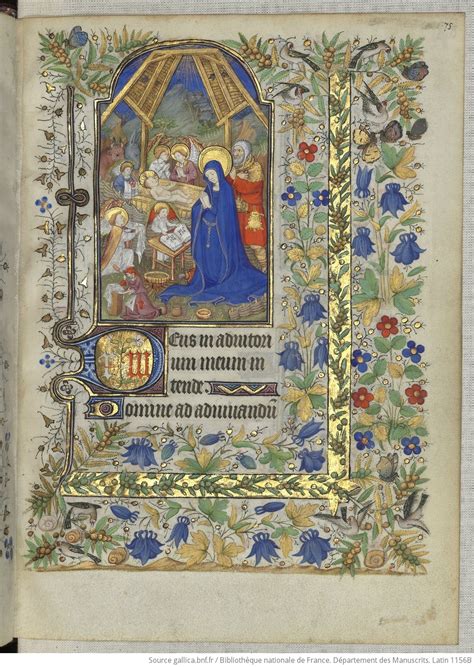 75
Deus in adiutori
um meum in
tende
Domine ad adiuuandū
Source gallica.bnf.fr / Bibliothèque nationale de France. Département des Manuscrits. Latin 1156B